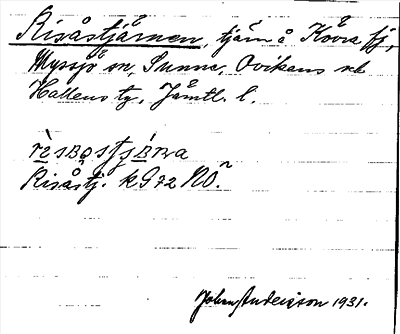 Risåstjärnen, tjärn å Kövra fj,
Myssjö sn, Sunne, Ovikens
Hallens tg. Jämtl. l.
Risåstj. kG72 NÖ.
John Anderzson 1931.